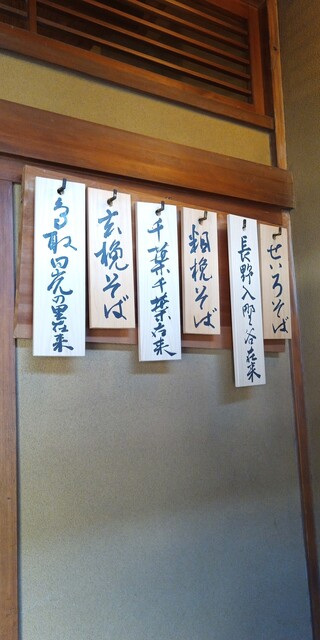 せいろそば
長野入野谷在来
粗挽そば
千葉千葉在来
玄挽そば
鳥取 の黒在来